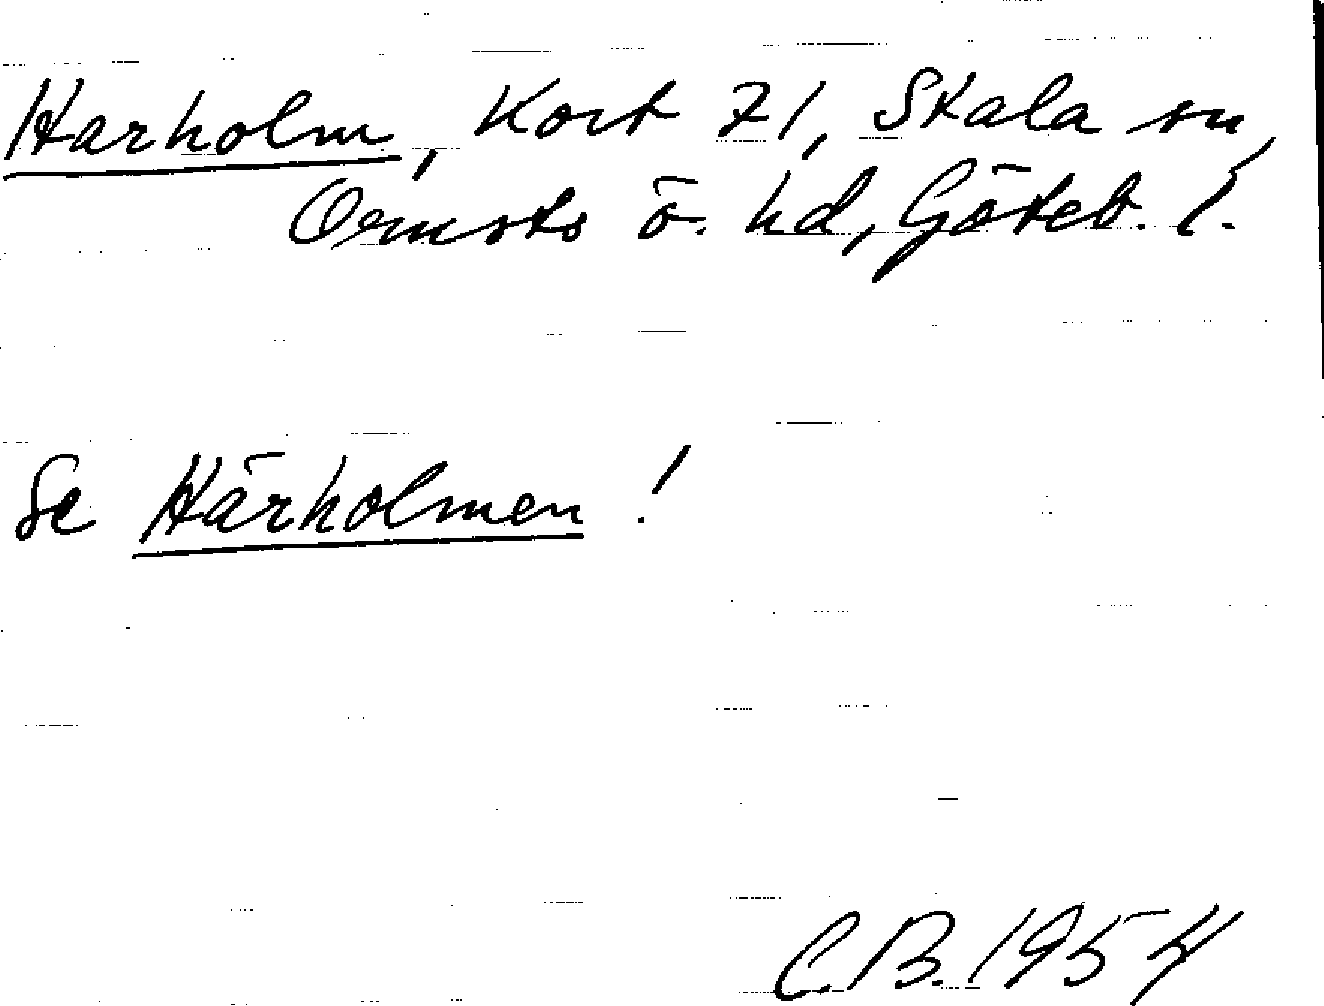 Harholm, Kort 71, Skala sn,
Orusts ö. hd, Göteb. l.
Se Härholmen!
C.B. 1954